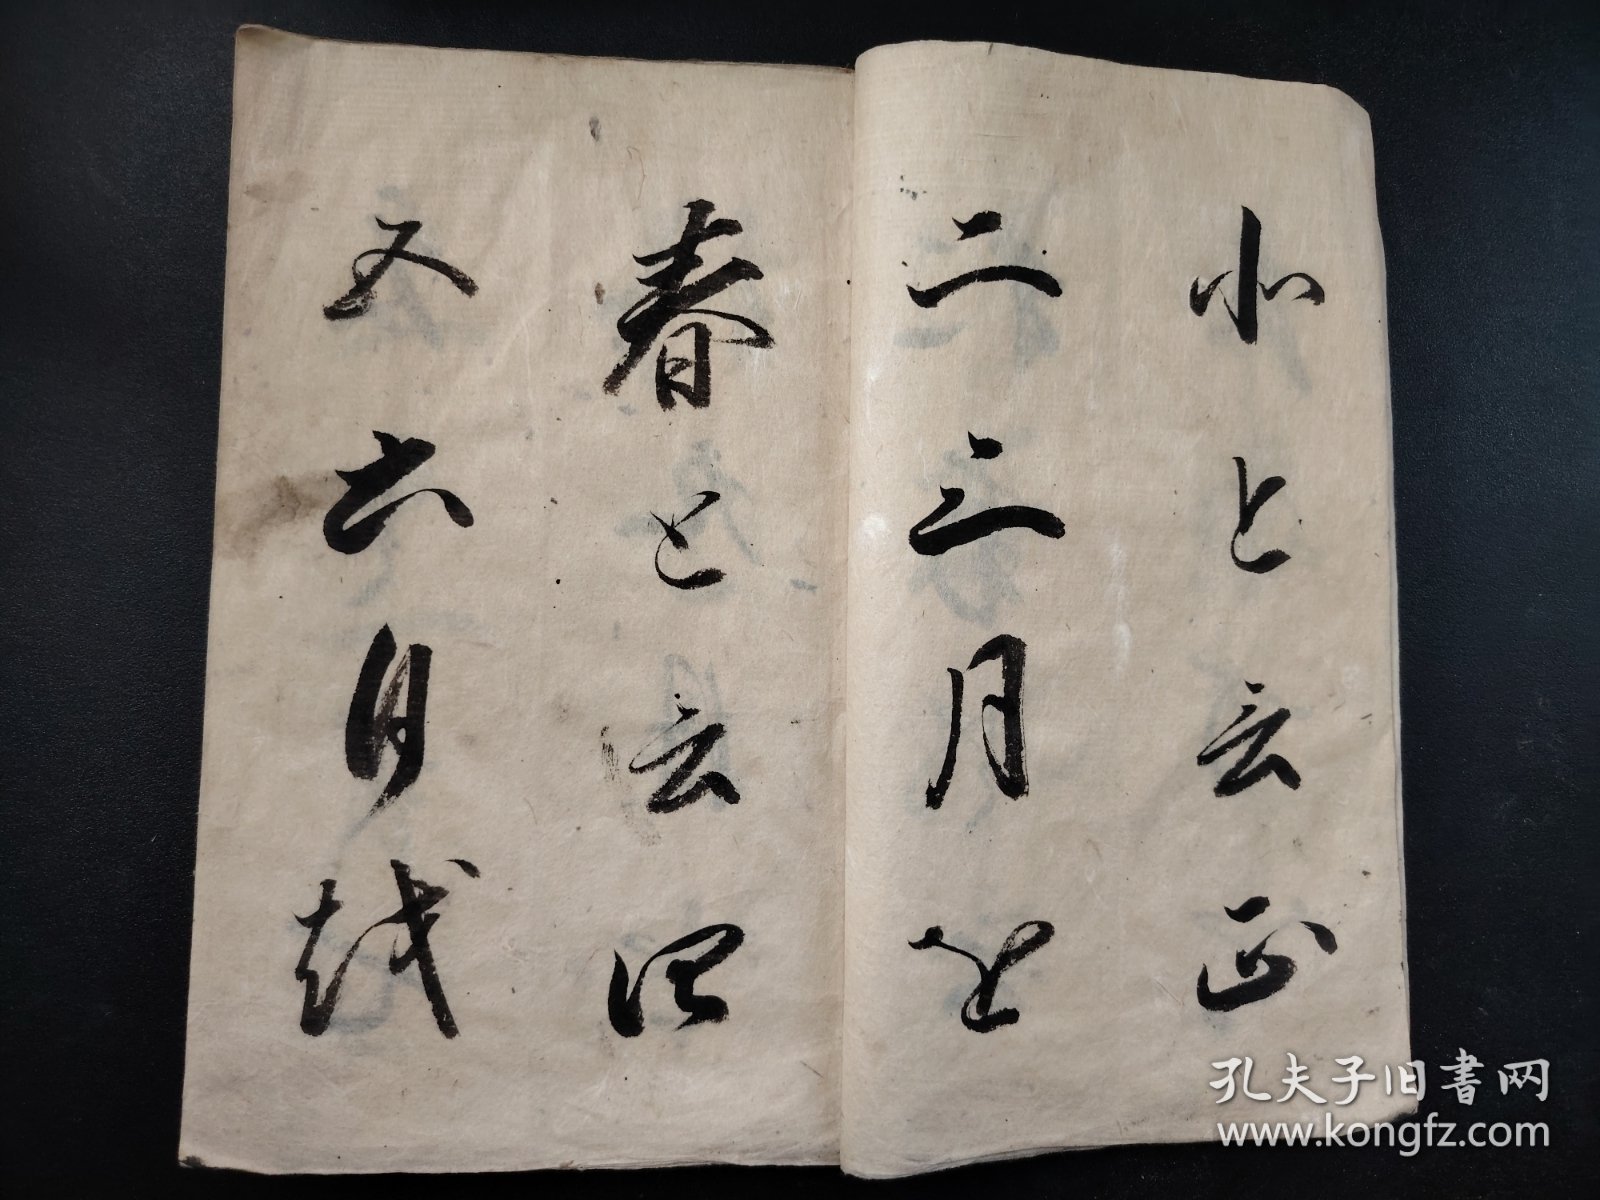 北と云正
二三月を
春と云四
五六月越
孔夫子旧书网
www.kongfz.com